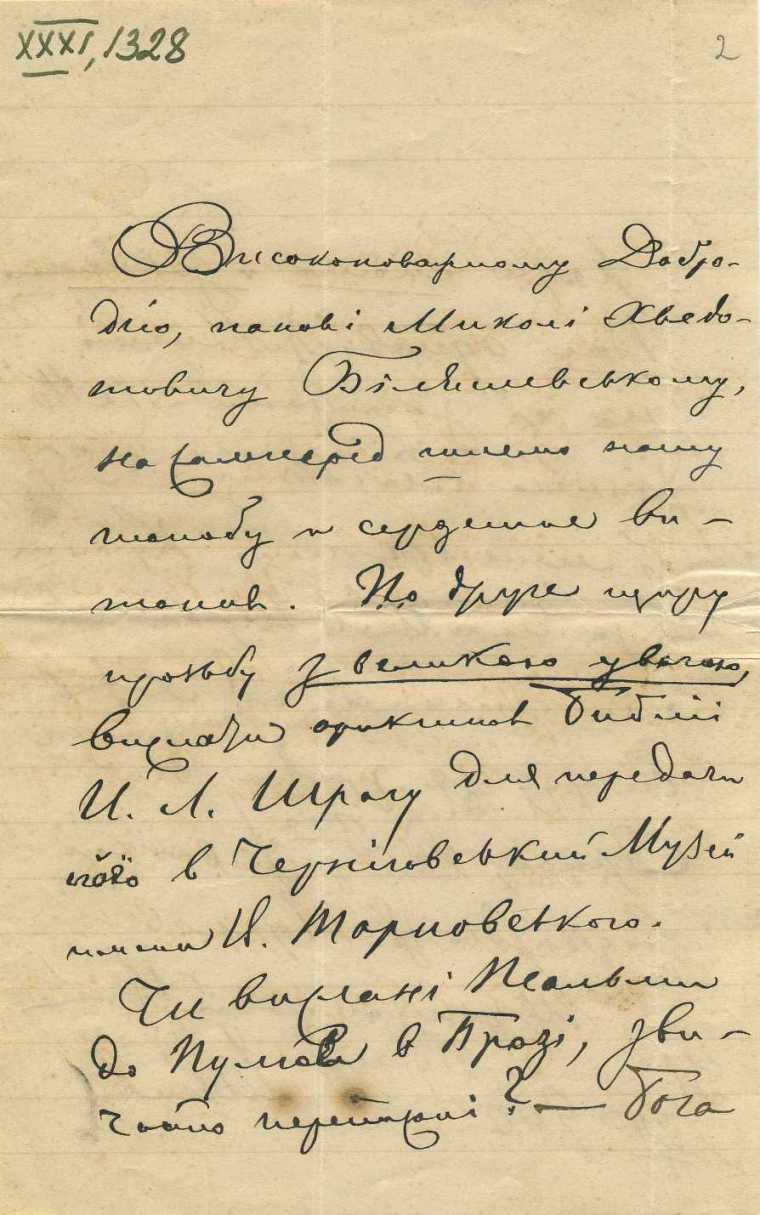 XXXI, 1328
2
Високоповажному Добро-
дію, панові Миколі Хведо-
товичу Біляшевському,
на самперед шлемо нашу
шанобу и сердешне ви-
танне. По друге щиру
прозьбу з великою увагою,
вислати орикинал Библиї
И. Л. Шрагу для передачи
в Чернїговський Музей
имени И. Тарновського.
Чи вислані Псальми
до Пулюя в Празі, зви-
чайно переписані? — Бога